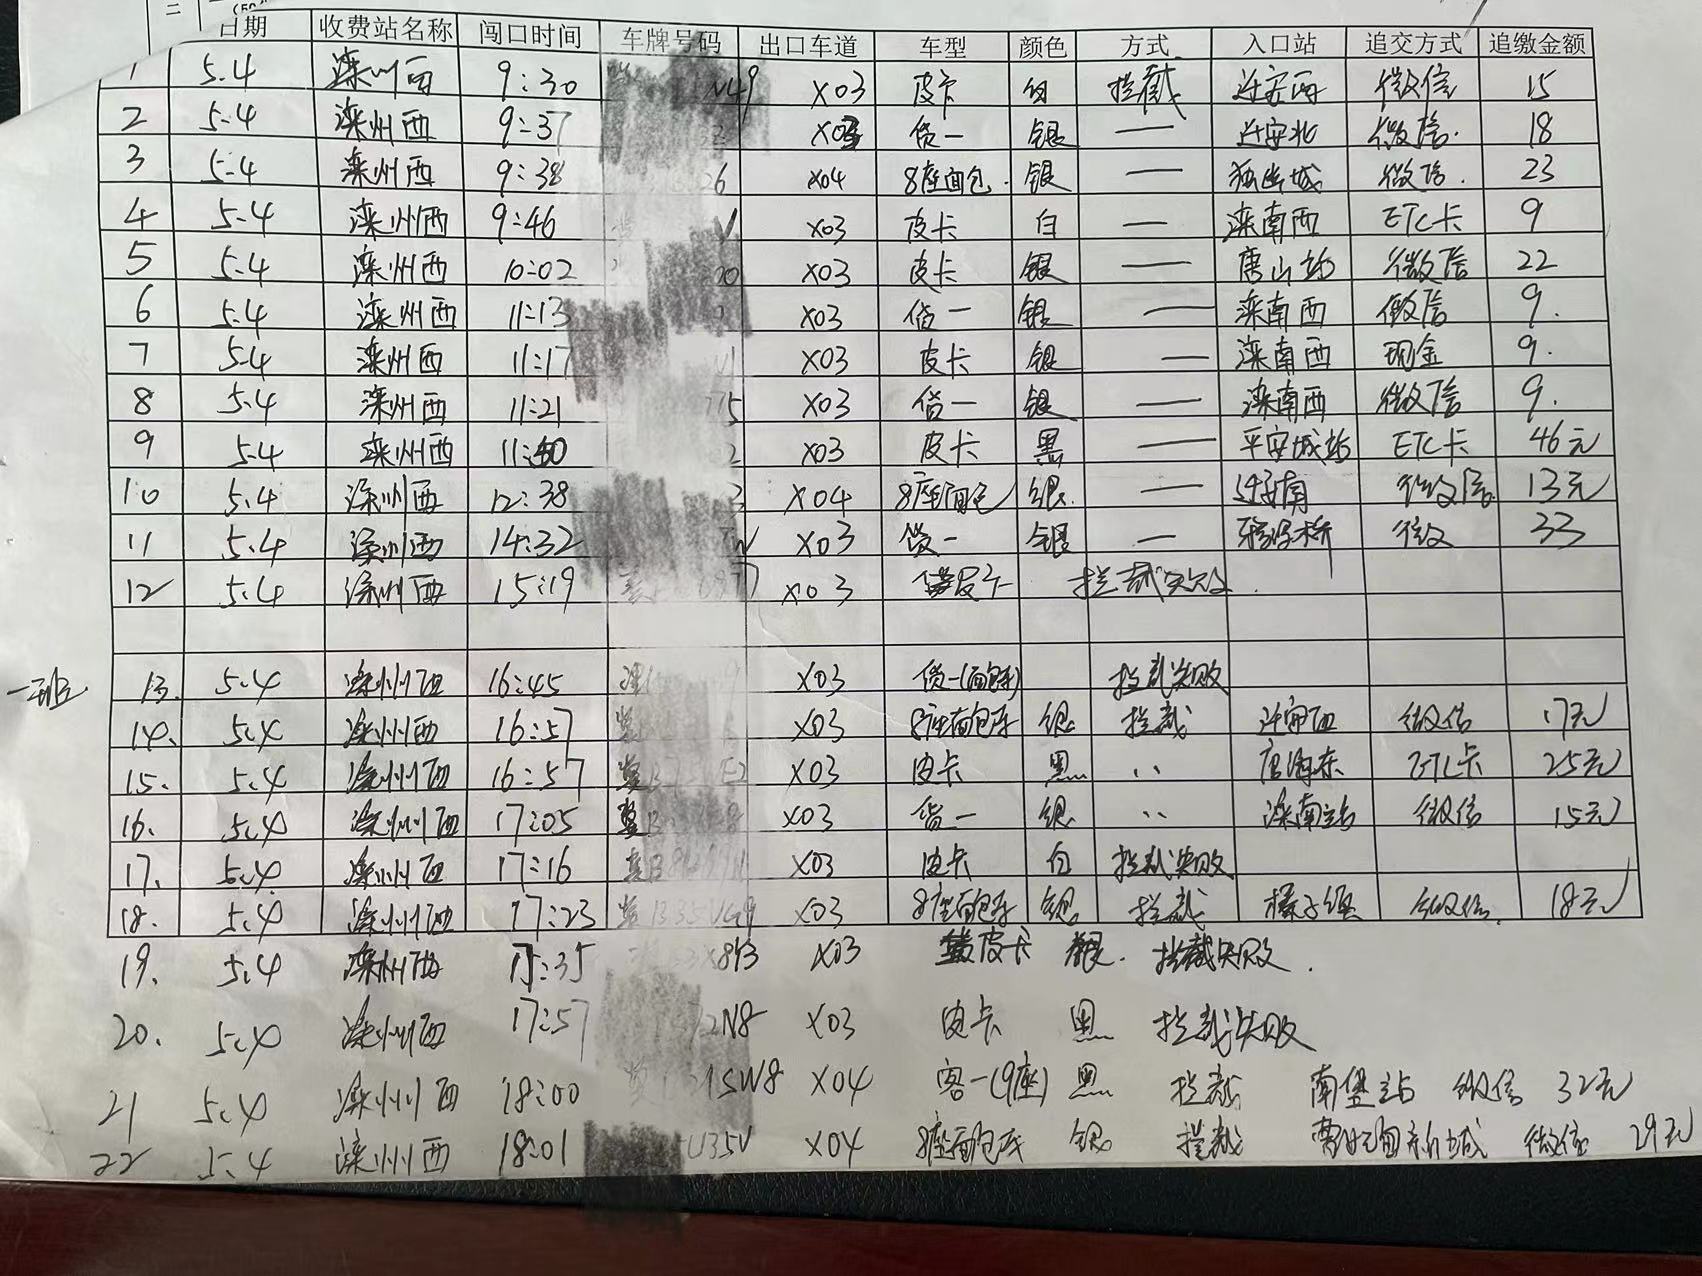 二
日期 收费站名称 闯口时间 车牌号码 出口车道 车型 颜色 方式 入口站 追交方式 追缴金额
1 5.4 滦州西 9:30 N49 X03 皮卡 白 拦截 迁安西 微信 15
2 5.4 滦州西 9:37 X03 货一 银 — 迁安北 微信. 18
3 5.4 滦州西 9:38 26 X04 8座面包. 银 — 微信. 23
4 5.4 滦州西 9:46 V X03 皮卡 白 — 滦南西 ETC卡 9
5 5.4 滦州西 10:02 X03 皮卡 银 — 唐山站 微信 22
6 5.4 滦州西 11:13 X03 货一 银 — 滦南西 微信 9.
7 5.4 滦州西 11:17 X03 皮卡 银 — 滦南西 现金 9.
8 5.4 滦州西 11:21 X03 货一 银 — 滦南西 微信 9.
9 5.4 滦州西 X03 皮卡 黑 — 平安城站 ETC卡 46元
10 5.4 滦州西 12:38 X04 8座面包 银. — 微信 13元
11 5.4 滦州西 14:32 X03 货一 银 — 微 33
12 5.4 滦州西 15:19 X03 皮卡 拦截失败.
一班 13. 5.4 滦州西 16:45 X03 货一(面包车) 拦截失败
14. 5.4 滦州西 16:57 X03 8座面包车 银 拦截 迁安西 微信 17元
15. 5.4 滦州西 16:57 冀 X03 皮卡 黑 ‥ ETC卡 25元
16. 5.4 滦州西 17:05 冀 X03 货一 银 ‥ 滦南站 微信 15元
17. 5.4 滦州西 17:16 X03 皮卡 白 拦截失败
18. 5.4 滦州西 17:23 冀B35VG9 X03 8座面包车 银 拦截 榛子镇 微信. 18元
19. 5.4 滦州西 X03 皮卡 银. 拦截失败.
20. 5.4 滦州西 17:57 2N8 X03 皮卡 黑 拦截失败
21 5.4 滦州西 18:00 SW8 X04 客一(9座) 黑 拦截 南堡站 微信 32元
22 5.4 滦州西 18:01 U35V X04 8座面包车 银 拦截 曹妃甸新城 微信 29元